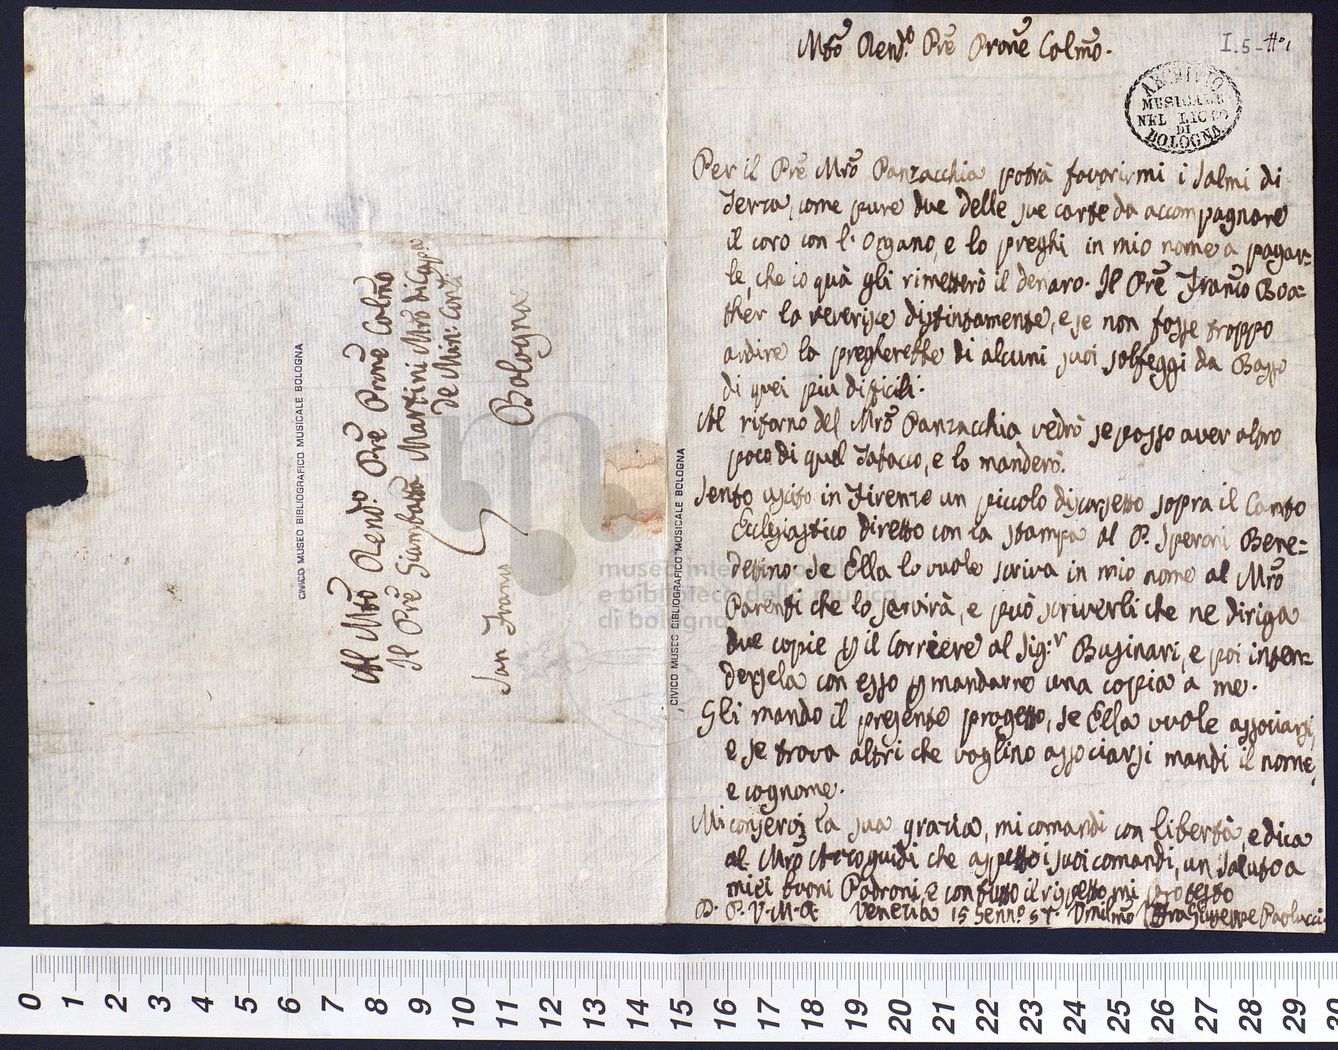 Al Mtõ Rendo. Prẽ Prone Colmo
Il Prẽ Giambatta Martini Mrõ di Cappa
de Min: Conti
Bologna
San Franco
CIVICO MUSEO BIBLIOGRAFICO MUSICALE BOLOGNA
CIVICO MUSEO BIBLIOGRAFICO MUSICALE BOLOGNA
museo internazionale
e biblioteca della musica
di bologna
Mtõ Rend.o Prẽ Prone Colmo.
I.5-
ARCHIVIO
MUSICALE
NEL LICEO
DI
BOLOGNA
Per il Prẽ Mrõ Panzacchia potrà favorirmi i Salmi di
Terza, come pure due delle sue carte da accompagnare
il coro con l'Organo, e lo preghi in mio nome a pagar=
le, che io quà gli rimetterò il denaro. Il Prẽ Franco Boa=
ther la reverisce distintamente, e se non fosse troppo
ardire la pregherebbe di alcuni suoi solfeggi da Basso
di quei piu dificili.
Al ritorno del Mrõ Panzacchia vedrò se posso aver altro
poco di quel Tabacco, e lo manderò.
Sento uscito in Firenze un piccolo discorsetto sopra il Canto
Ecclesiastico diretto con la stampa al P. Speroni Bene=
dettino. Se Ella lo vuole scriva in mio nome al Mrõ
Parenti che lo servirà, e può scriverli che ne diriga
due copie p il Corriere al Sig.r Businari, e poi inten=
dersela con esso p mandarne una copia a me.
Gli mando il presente progetto, se Ella vuole associarsi,
e se trova altri che voglino associarsi mandi il nome,
e cognome.
Mi conservi la sua grazia, mi comandi con libertà, e dica
al Mrõ che aspetto i suoi comandi, un saluto a
miei buoni Padroni, e con tutto il rispetto mi protesto
D. P. V. M. R. Venezia 15 Genno. 57. Umilmo Fra Giuseppe Paolucci
0 1 2 3 4 5 6 7 8 9 10 11 12 13 14 15 16 17 18 19 20 21 22 23 24 25 26 27 28 29